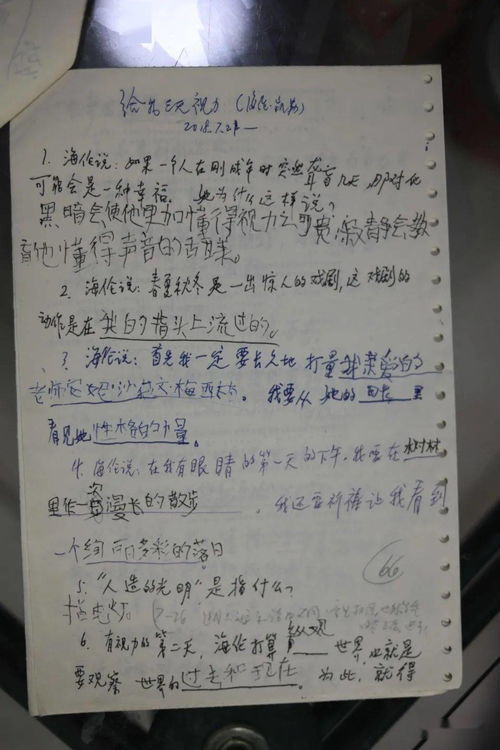 给我三天视力（海伦·凯勒）
2018.7.21—
1. 海伦说：如果一个人在刚成年时突然聋盲几天，那对他
可能会是一种幸福。她为什么这样说？
黑暗会使他更加懂得视力之可贵，寂静会教
育他懂得声音的甜美。
2. 海伦说：春夏秋冬是一出惊人的戏剧，这戏剧的
动作是在我的指头上流过的。
3. 海伦说：首先我一定要长久地打量我亲爱的
老师安妮·沙利文·梅西太太。我要从她的 里
看见她性格的力量。
4. 海伦说：在我有眼睛的第一天的下午，我要在树林
里作一次漫长的散步。我还要祈祷让我看到
一个绚丽多彩的落日
66
5. "人造的光明"是指什么？
指电灯 7-26
6. 有视力的第二天，海伦打算纵观世界，也就是
要观察世界的过去和现在。为此，就得